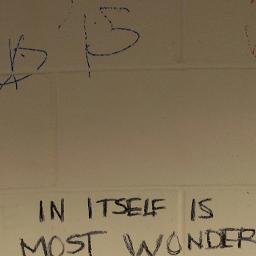 IN ITSELF IS
MOST WONDER